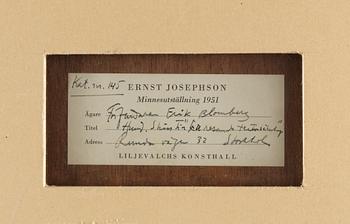 Kat. nr. 145
ERNST JOSEPHSON
Minnesutställning 1951
Ägare Författaren Erik Blomberg
Titel Hund. Skiss
Adress Runda vägen 32 Stockholm
LILJEVALCHS KONSTHALL